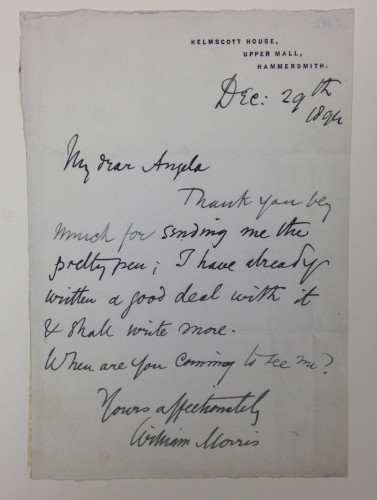 KELMSCOTT HOUSE,
UPPER MALL,
HAMMERSMITH.
Dec: 29th
1894
My dear Angela
Thank you very
much for sending me the
pretty pen; I have already
written a good deal with it
& shall write more.
When are you coming to see me?
Yours affectionately
William Morris